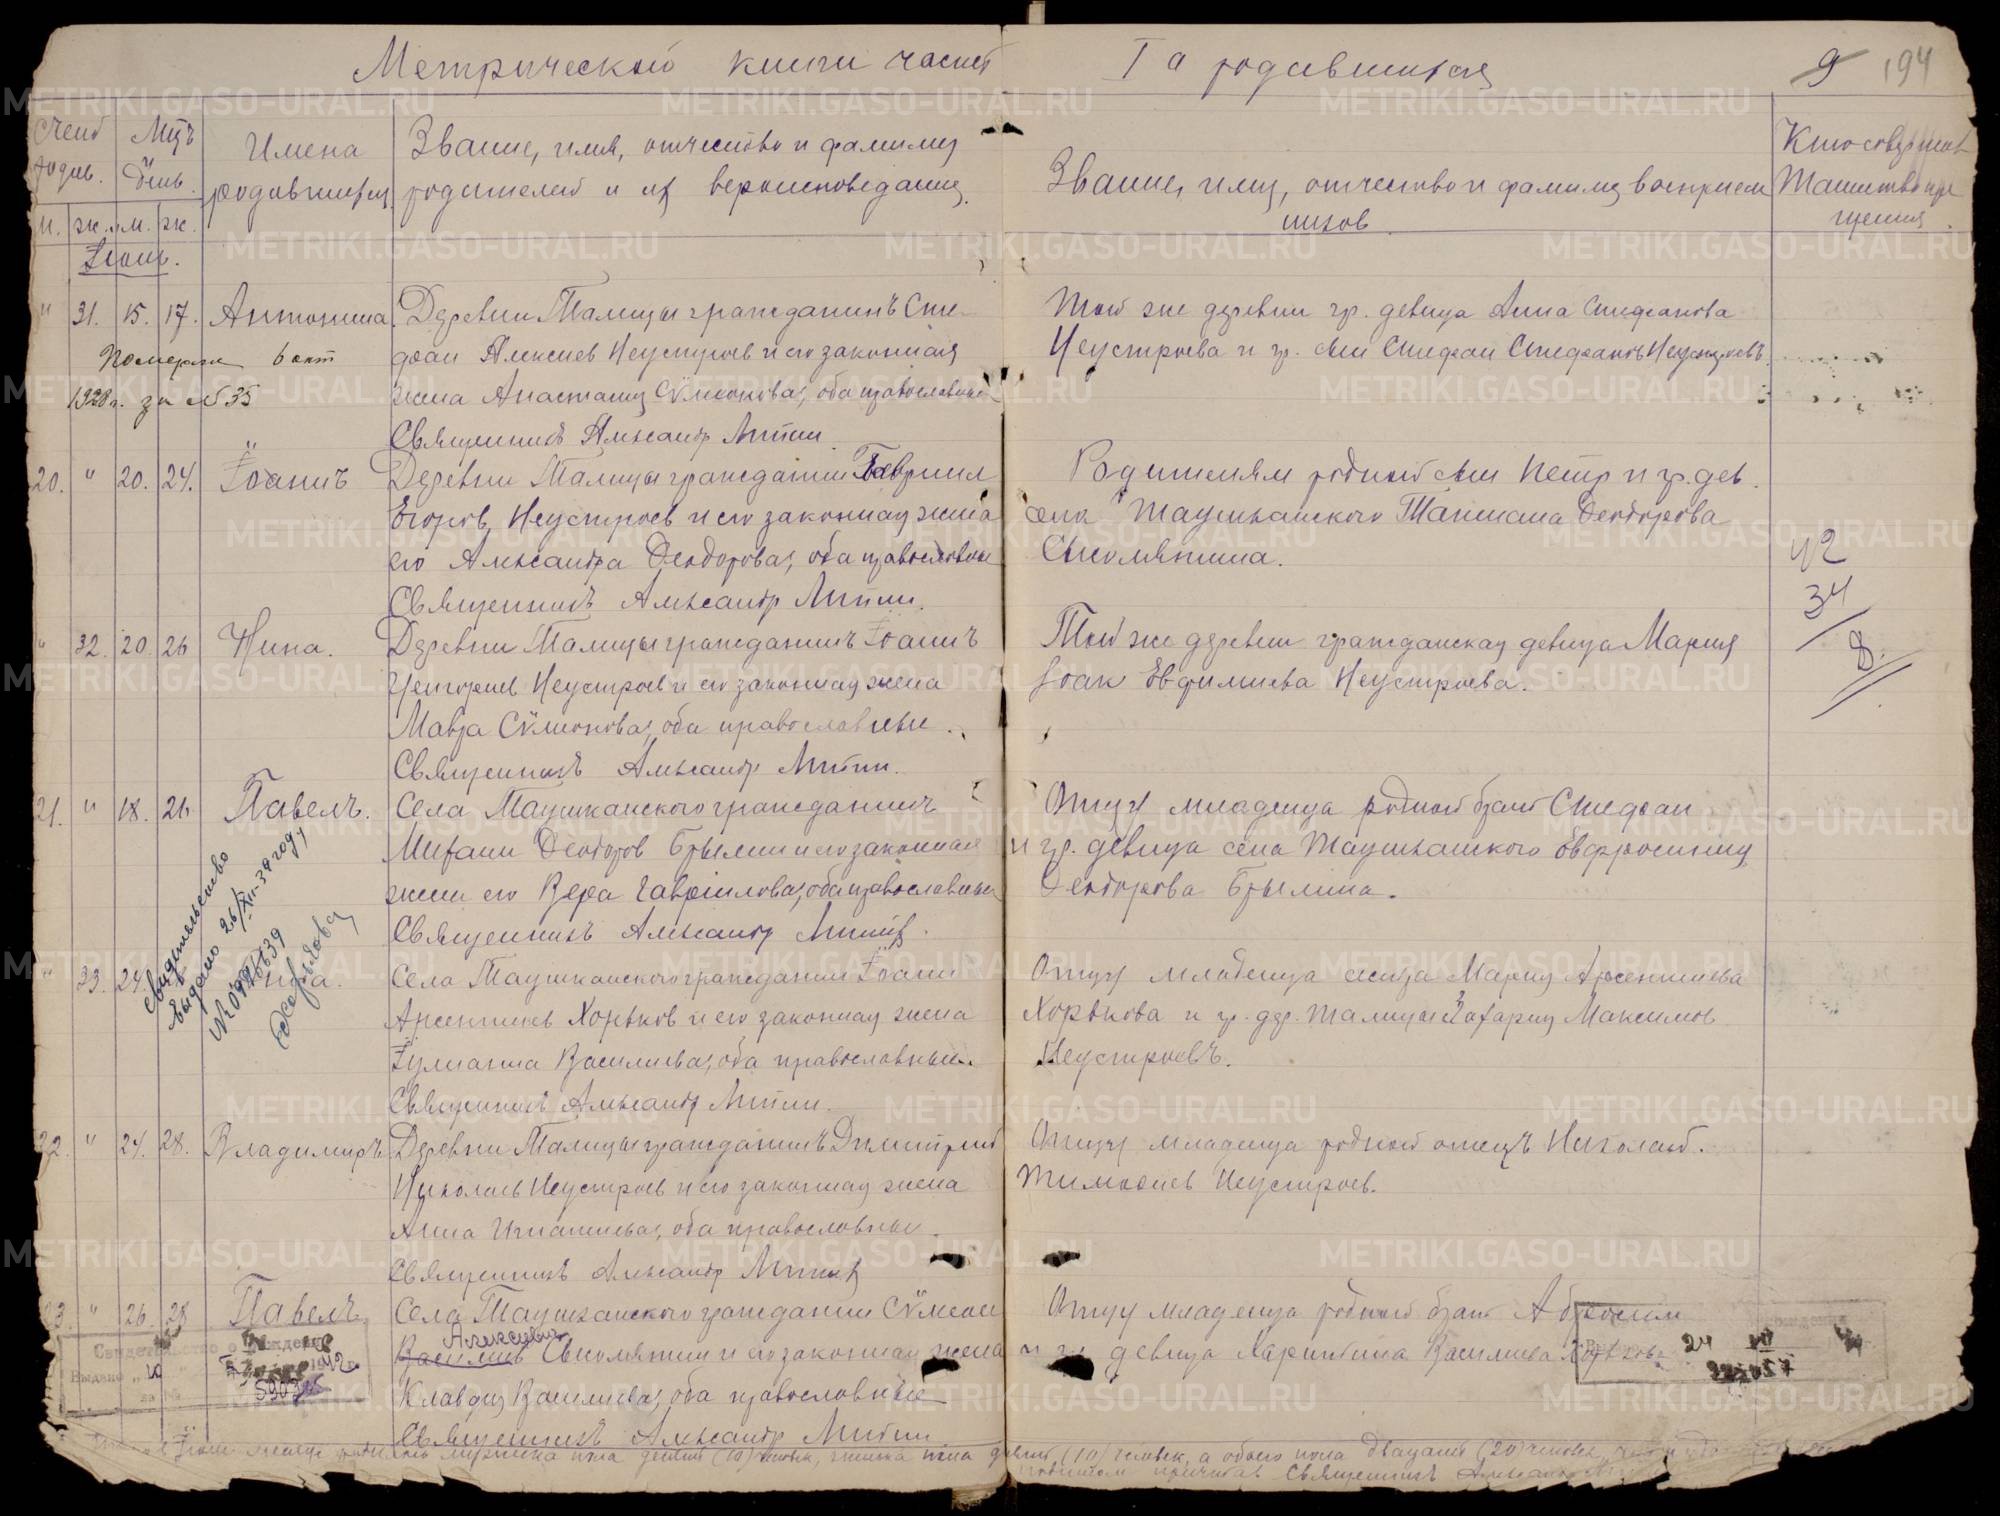 Метрической книги часть I а родившихся
9 194
Счет родив.
Мѣц и день.
Имена родившихся
Званіе, имя, отчество и фамилия родителей и их вероисповедание.
Званіе, имя, отчество и фамилия восприемников
Кто совершал Таинство крещения
м. ж. м. ж.
Іюнь.
" 31. 15. 17. Антонина.
Деревни Талицы гражданинъ Сте-
фан Алексиев Неустроев и его законная
жена Анастасия Сѵмеонова, оба православные
Священникъ Александр Митин
Той же деревни гр. девица Анна Стефанова
Неустроева и гр. сын Стефан Стефановъ Неустроевъ.
Померла 6 окт
1928 г. за № 35
20. " 20. 24. Іоаннъ
Деревни Талицы гражданин Гавриил
Егоров Неустроев и его законная жена
его Александра Феодорова, оба православные
Священникъ Александр Митин.
Родителям родной сын Петр и гр. дев.
села Таушканского Татиана Феодорова
Смолянина.
42
34
8.
" 32. 20. 26 Нина.
Деревни Талицы гражданинъ Іоаннъ
Григориев Неустроев и его законная жена
Мавра Сѵмеонова, оба православные.
Священникъ Александр Митин.
Той же деревни гражданская девица Мария
Евфимиева Неустроева.
21. " 18. 26 Павелъ.
Села Таушканского гражданинъ
Михаил Феодоров Брылин и его законная
жена его Вера Гавріилова, оба православные
Священникъ Александр Митин.
Отцу младенца родной брат Стефан
и гр. девица села Таушканского Евфросиния
Феодорова Брылина.
свидетельство
выдано 26/XII-34 году
" 33. 24.
Села Таушканского гражданин Іоанн
Арсентиев Хорьков и его законная жена
Іулиания Василиева, оба православные
Священникъ Александр Митин.
Отцу младенца сестра Мария Арсентиева
Хорькова и гр. дер. Талицы Захария Максимов
Неустроевъ.
22. " 24. 28. Владимиръ
Деревни Талицы гражданинъ Димитрий
Николаев Неустроев и его законная жена
Анна Игнатиева, оба православные.
Священникъ Александр Митин
Отцу младенца родной отецъ Николай.
Тимофиев Неустроев.
23. " 26. 28 Павелъ
Села Таушканского гражданин Сѵмеон
Алексиевич
Василиев Смолянин и его законная жена
Клавдия Василиева, оба православные
Священникъ Александр Митин
Отцу младенца родной брат Абросим
и гр. девица Харитина Василиева Хорькова
Свидетельство о рождении
Выдано
24 VII
Іюнь месяце родилось мужеска пола десять (10) человек, женска пола десять (10) человек, а обоего пола двадцать (20) человек
Священникъ Александр
METRIKI.GASO-URAL.RU